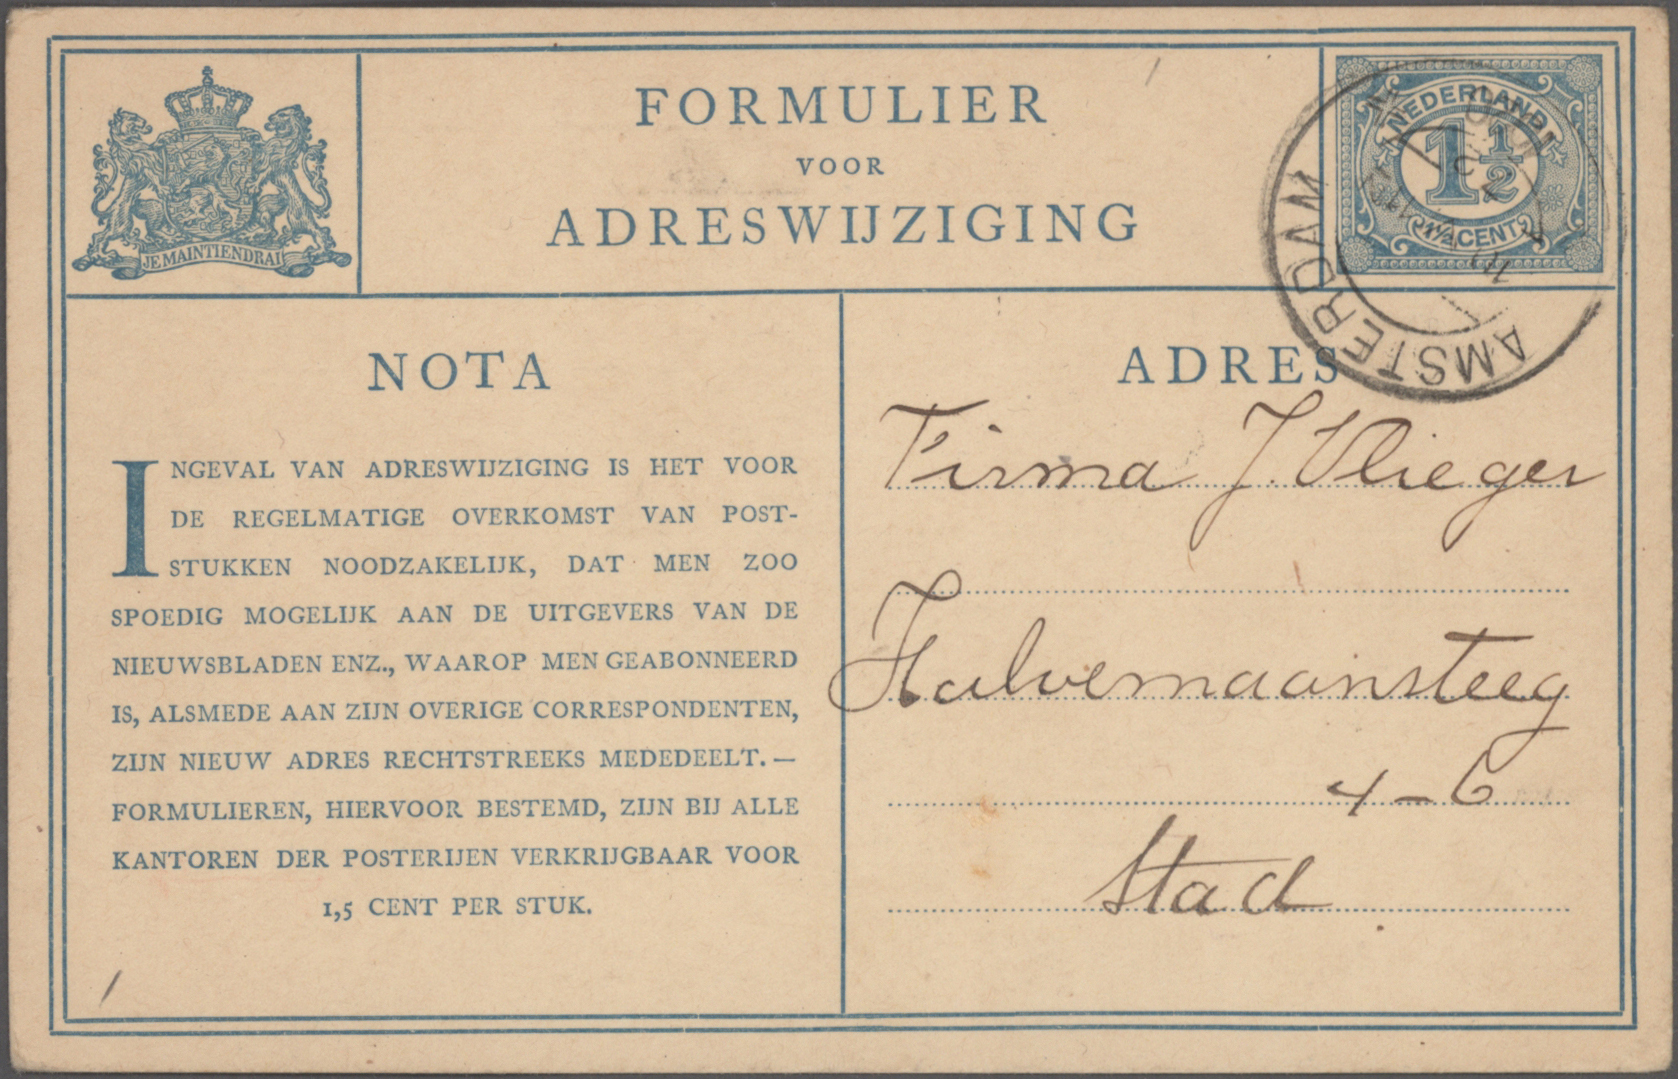 JE MAINTIENDRAI
FORMULIER
VOOR
ADRESWIJZIGING
NEDERLAND
1½
1½ CENT
AMSTERDAM
NOTA
INGEVAL VAN ADRESWIJZIGING IS HET VOOR
DE REGELMATIGE OVERKOMST VAN POST-
STUKKEN NOODZAKELIJK, DAT MEN ZOO
SPOEDIG MOGELIJK AAN DE UITGEVERS VAN DE
NIEUWSBLADEN ENZ., WAAROP MEN GEABONNEERD
IS, ALSMEDE AAN ZIJN OVERIGE CORRESPONDENTEN,
ZIJN NIEUW ADRES RECHTSTREEKS MEDEDEELT. —
FORMULIEREN, HIERVOOR BESTEMD, ZIJN BIJ ALLE
KANTOREN DER POSTERIJEN VERKRIJGBAAR VOOR
1,5 CENT PER STUK.
ADRES
Firma J. Vlieger
Halvemaansteeg
4-6
Stad